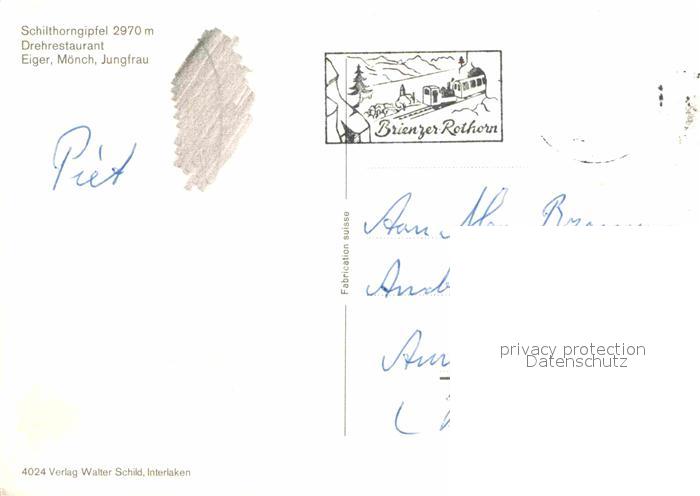 Schilthorngipfel 2970 m
Drehrestaurant
Eiger, Mönch, Jungfrau
Brienzer-Rothorn
Piet
Fabrication suisse
Aan
privacy protection
Datenschutz
4024 Verlag Walter Schild, Interlaken